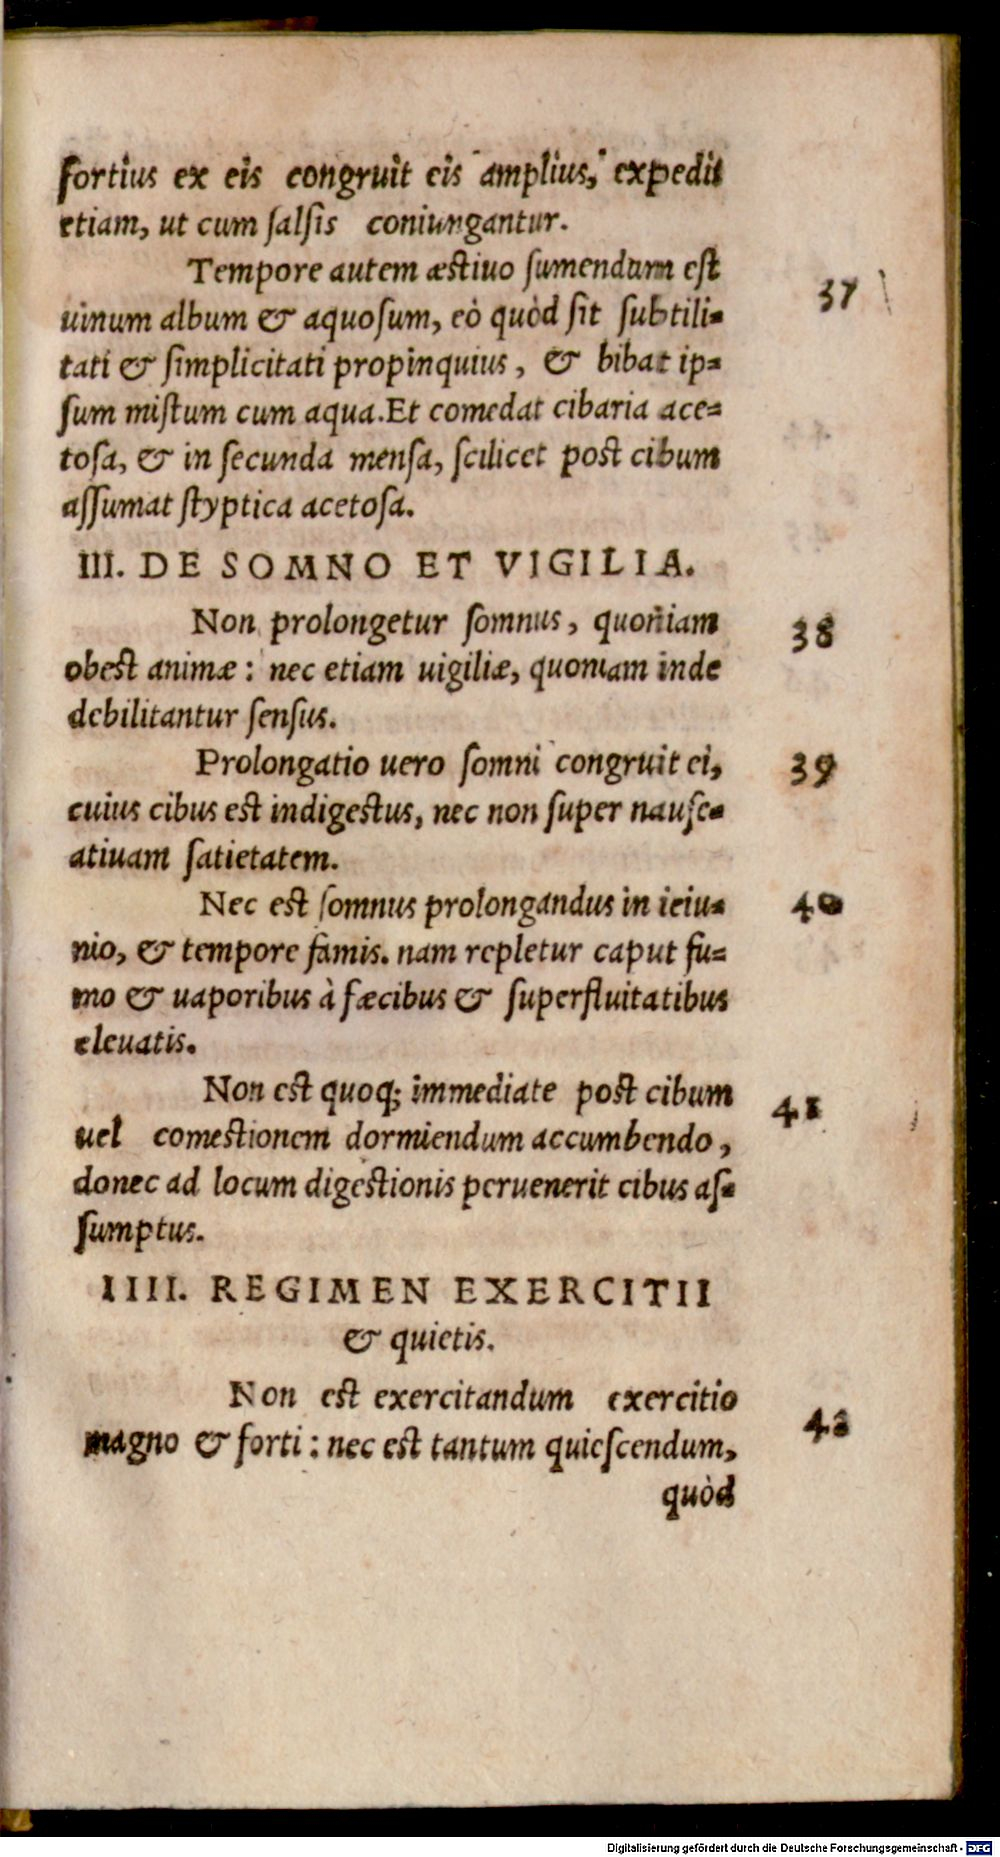 fortius ex eis congruit eis amplius, expedit
etiam, ut cum salsis coniungantur.
Tempore autem æstiuo sumendum est
uinum album & aquosum, eò quòd sit subtili-
tati & simplicitati propinquius, & bibat ip-
sum mistum cum aqua. Et comedat cibaria ace-
tosa, & in secunda mensa, scilicet post cibum
assumat styptica acetosa.
37
III. DE SOMNO ET VIGILIA.
Non prolongetur somnus, quoniam
obest animæ: nec etiam uigiliæ, quoniam inde
debilitantur sensus.
38
Prolongatio uero somni congruit ei,
cuius cibus est indigestus, nec non super nause-
atiuam satietatem.
39
Nec est somnus prolongandus in ieiu-
nio, & tempore famis. nam repletur caput fu-
mo & uaporibus à fæcibus & superfluitatibus
eleuatis.
40
Non est quoq; immediate post cibum
uel comestionem dormiendum accumbendo,
donec ad locum digestionis peruenerit cibus as-
sumptus.
41
IIII. REGIMEN EXERCITII
& quietis.
Non est exercitandum exercitio
magno & forti: nec est tantum quiescendum,
42
quòd
Digitalisierung gefördert durch die Deutsche Forschungsgemeinschaft - DFG